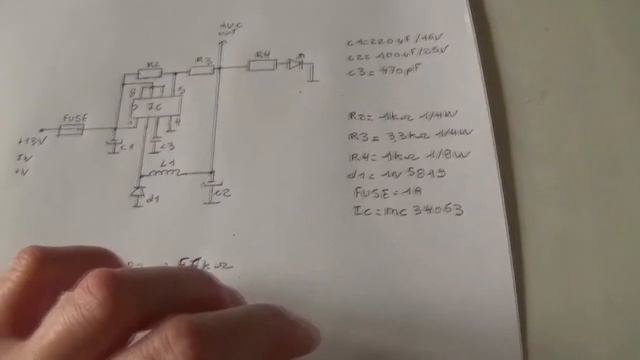 R2
R3
R4
8
5
IC
1
4
FUSE
+13V
C1
C3
L1
d1
C2
C1=220uF/16V
C2=100uF/25V
C3=470pF
R2=1kΩ 1/4W
R3=3,3kΩ 1/4W
R4=1kΩ 1/8W
d1=1N 5819
FUSE=1A
IC=mc 34063